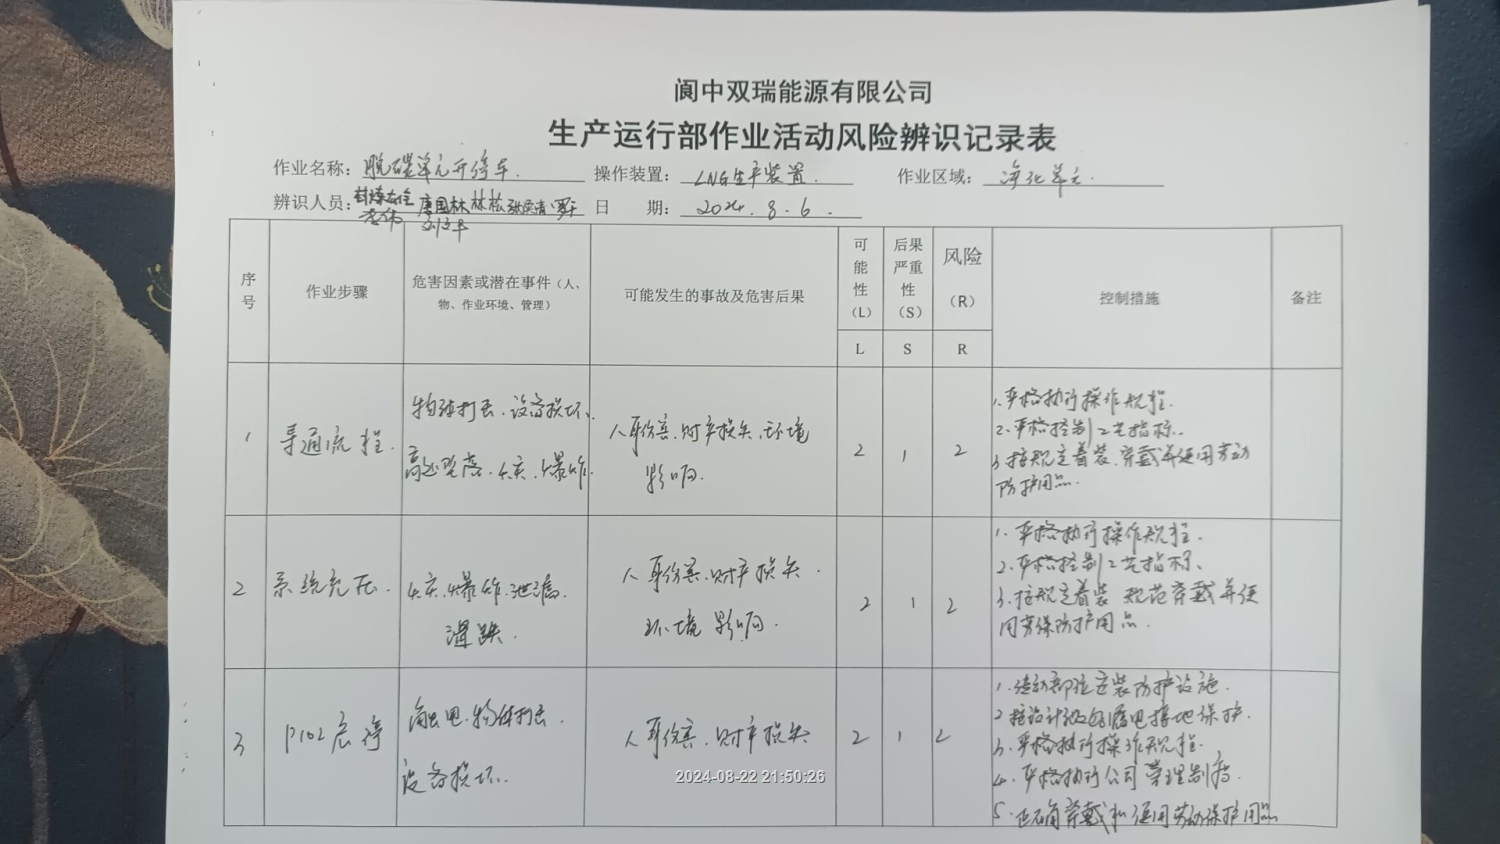 阆中双瑞能源有限公司
生产运行部作业活动风险辨识记录表
作业名称：脱碳单元开停车. 操作装置：LNG生产装置. 作业区域：净化单元.
辨识人员： 唐国林 林松 日 期：2024.8.6.
序号 作业步骤 危害因素或潜在事件（人、物、作业环境、管理） 可能发生的事故及危害后果 可能性（L） 后果严重性（S） 风险（R） 控制措施 备注
L S R
1 导通流程. 物体打击.设备损坏、
高处坠落.火灾.爆炸.
人身伤害.财产损失.环境
影响.
2 1 2
1.严格执行操作规程.
2.严格控制工艺指标.
3.按规定着装.穿戴并使用劳动
防护用品.
2 系统充压. 火灾.爆炸.泄漏.
滑跌.
人身伤害.财产损失.
环境影响.
2 1 2
1.严格执行操作规程.
2.严格控制工艺指标、
3.按规定着装 规范穿戴并使
用劳保防护用品.
3 P102启停 触电.物体打击.
设备损坏.
人身伤害.财产损失
2 1 2
1.传动部位安装防护设施.
2按设计做好漏电接地保护.
3.严格执行操作规程.
4.严格执行公司管理制度.
5.正确穿戴和使用劳动保护用品.
2024-08-22 21:50:26